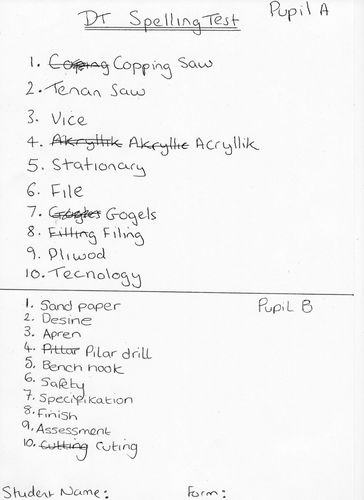 DT Spelling Test Pupil A
1. Coping Copping Saw
2. Tenan Saw
3. Vice
4. Akryllik Akryllic Acryllik
5. Stationary
6. File
7. Gogels
8. Filling Filing
9. Pliwod
10. Tecnology
1. Sand paper Pupil B
2. Desine
3. Apren
4. Pittar Pilar drill
5. Bench hook
6. Safety
7. Specifikation
8. Finish
9. Assessment
10. Cutting Cuting
Student Name: Form: